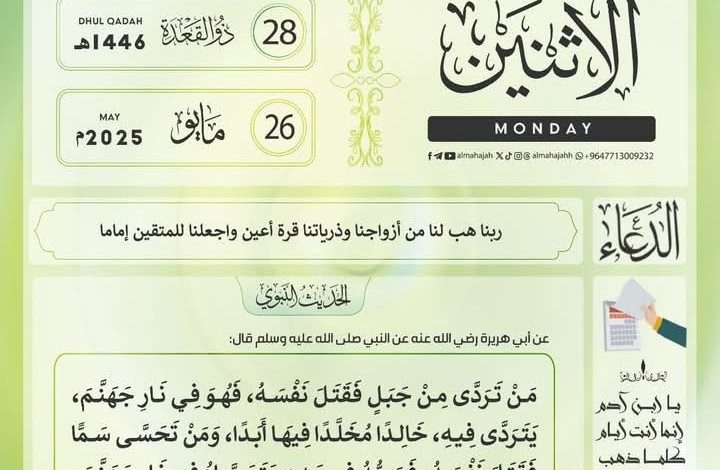 الاثنين
MONDAY
almahajah almahajahh +9647713009232
28
ذُو الْقَعْدَة
DHUL QADAH
1446هـ
26
مَايُو
MAY
2025م
الدُعَاء
ربنا هب لنا من أزواجنا وذرياتنا قرة أعين واجعلنا للمتقين إماما
الحَدِيثُ النَّبَوِي
عن أبي هريرة رضي الله عنه عن النبي صلى الله عليه وسلم قال:
مَنْ تَرَدَّى مِنْ جَبَلٍ فَقَتَلَ نَفْسَهُ، فَهُوَ فِي نَارِ جَهَنَّمَ،
يَتَرَدَّى فِيهِ، خَالِدًا مُخَلَّدًا فِيهَا أَبَدًا، وَمَنْ تَحَسَّى سَمًّا
يا ابن آدم
إنما أنت أيام
كلما ذهب